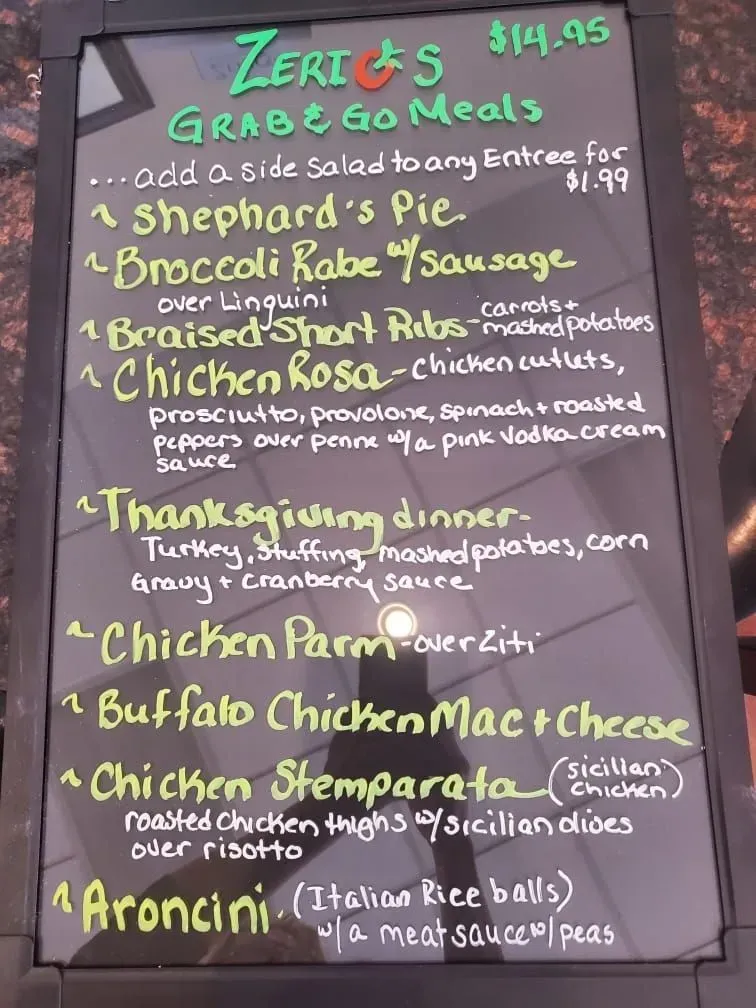 ZERIO'S $14.95
GRAB & GO Meals
...add a side salad to any Entree for
$1.99
~ Shephard's Pie
~ Broccoli Rabe w/ Sausage
over Linguini
~ Braised Short Ribs - carrots +
mashed potatoes
~ Chicken Rosa - chicken cutlets,
prosciutto, provolone, spinach + roasted
peppers over penne w/a pink vodka cream
sauce
~ Thanksgiving dinner -
Turkey, stuffing, mashed potatoes, corn
Gravy + cranberry sauce
~ Chicken Parm - over ziti
~ Buffalo Chicken Mac + Cheese
~ Chicken Stemparata (sicilian
chicken)
roasted chicken thighs w/sicilian olives
over risotto
~ Aroncini. (Italian Rice balls)
w/ a meat sauce w/ peas